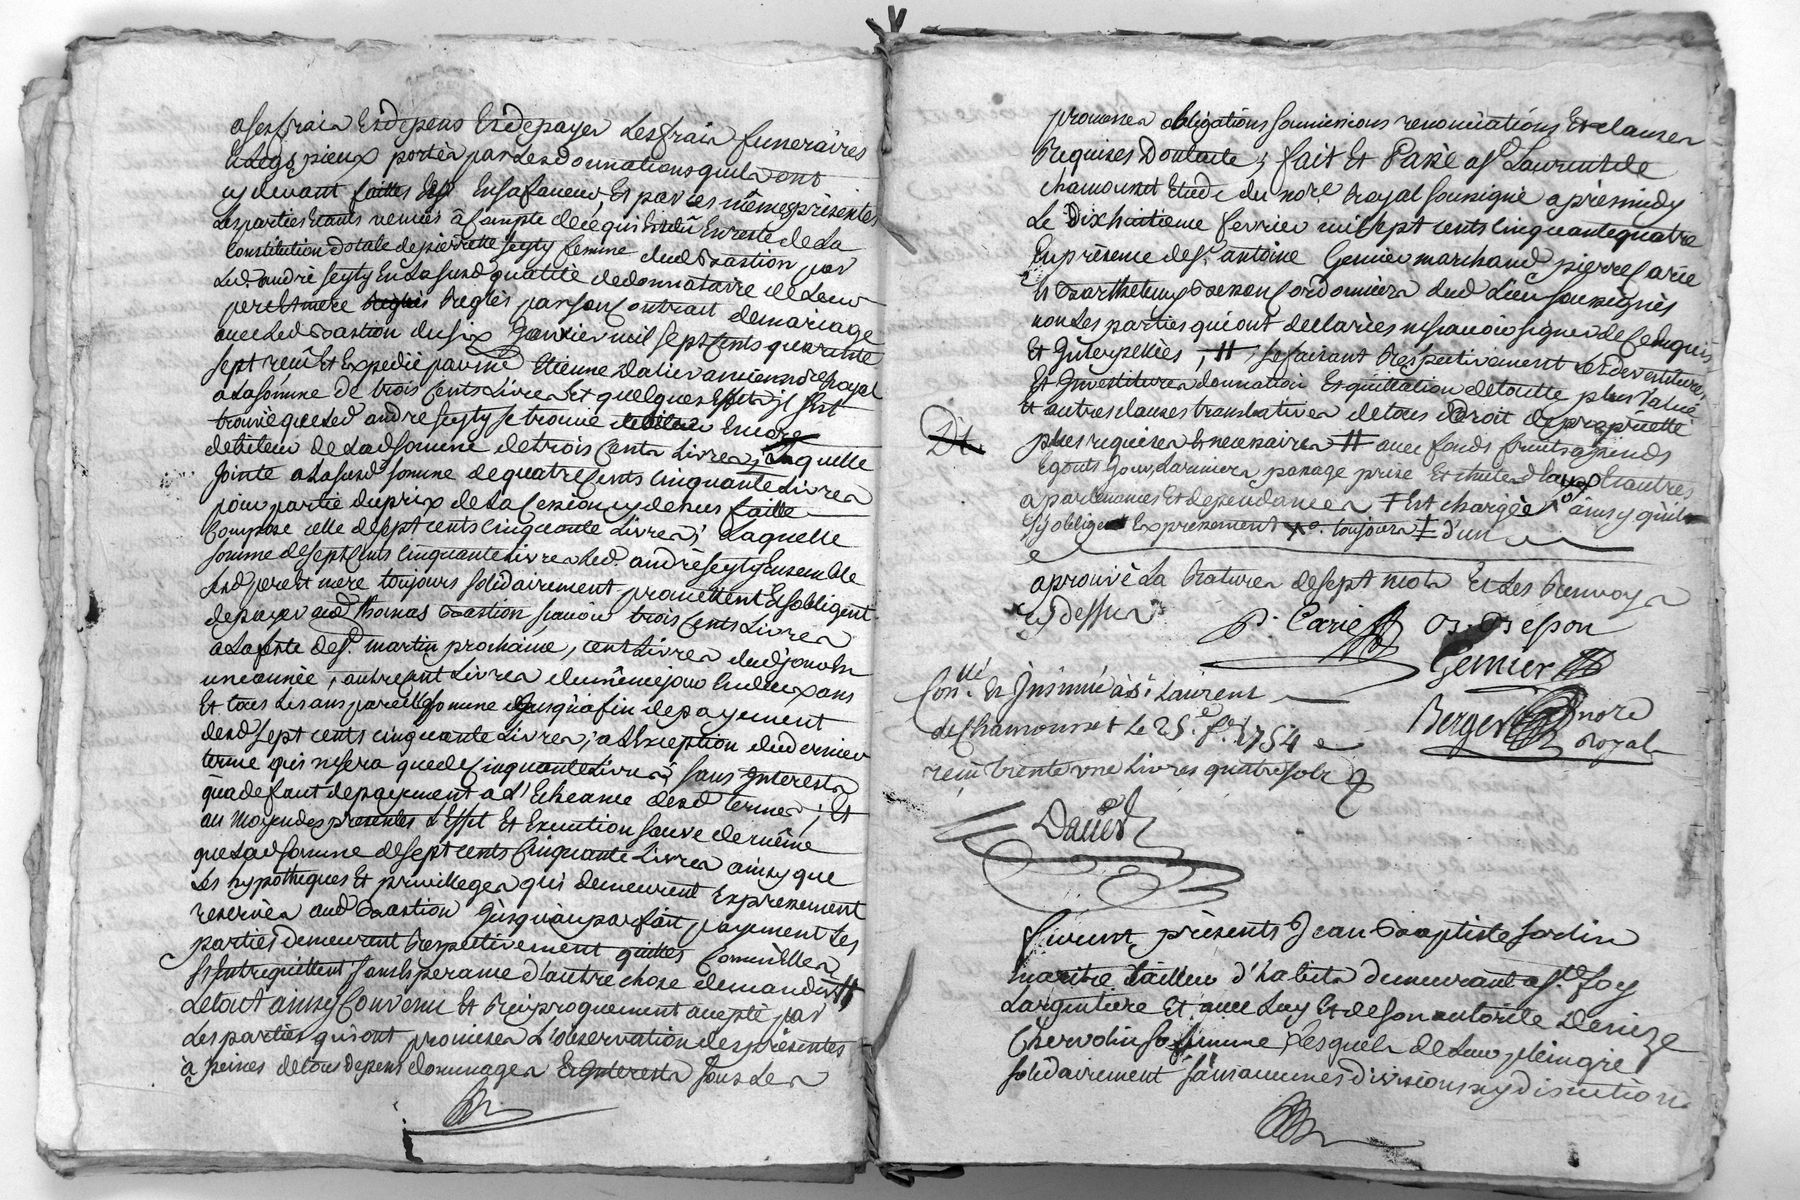 a ses frais Et depens Et de payer Les frais funeraires
Et Legs pieux portés par Les donnations quils ont
cy devant faittes En sa faveur, Et par Les mêmes présentes
Les parties Etants venues à Compte de ce qui Est dû En reste de La
Constitution dotale de pierrette seyty femme dud Bastion par
Led. andré seyty En La susd quatité de donnataire de Leur
pere Et mere Reglés par son Contrait de mariage
avec Led Bastion du six Janvier mil sept Cents quarante
sept recû Et Expedié par me Etienne Dalier ancien nore Royal
a La somme de trois Cents Livres Et quelques Effets il s'est
trouvé que Led andré seyty se trouve Encore
debiteur de La d somme de trois Cents Livres, Laquelle
jointe a La susd somme de quatre Cents Cinquante Livres
pour partie du prix de La Cession cy dessus faitte
Compose celle de sept cents Cinquante Livres; Laquelle
somme de sept Cents Cinquante Livres Led. andré seyty Ensemble
sesd pere Et mere toujours solidairement promettent Et s'obligent
de payer aud Thomas Bastion sçavoir trois Cents Livres
a La feste de St. martin prochaine, cent Livres dud jour En
une année, autre cent Livres du même jour En deux ans
Et tous Les ans pareille somme jusqu'a fin de payement
desd sept cents cinquante Livres; a L'Exception du dernier
terme qui ne sera que de Cinquante Livres sans Interests
qu'a defaut de payement a L'Echeance desd termes; Et
au moyen des presentes L'Effet Et Execution sauve de même
que La d somme de sept cents Cinquante Livres ainsy que
Les hypotheques Et privilleges qui demeurent Expressement
reservés aud Bastion Jusqu'au parfait payement Les
parties demeurent Respectivement quittes Comm'elles
s'Entrequittent sans Esperance d'autre chose demander #
Le tout ainsy Convenu Et Reciproquement accepté par
Les parties qui ont promises L'observation des présentes
à peines de tous depens dommages Et Interests sous Les
promesses obligations soumissions renonciations Et clauses
Requises Donttacte; fait Et Passé a St Laurent de
chamousset Etude du nore. Royal soussigné aprèsmidy
Le Dixhuitieme fevrier mil sept cents Cinquante quatre
En présence de Sr. antoine Gemier marchand pierre Carié
Et Barthelemy Besson Cordonniers dud Lieu soussignés
non Les parties qui ont declarées ne sçavoir signer de ce Enquis
Et Interpellées, # se faisant Respectivement Les devestitures
Et Investitures donnation Et quittation de toutte plus value
Et autres clauses translatives de tous droit de propriette
plus requises Et necessaires # avec fonds fruits apends
Egouts Jours Larmiers passage prise Et chutes d'Eaux Et autres
apartenances Et dependances ‡ Est chargée ainsy qu'ils
s'y obligent Expressement toujours ‡ d'un
aprouvé La Rature de sept mots Et Les Renvoys
cy dessus
P. Carié B. Besson
Gemier
Conllé. Et Insinué à St Laurent
de Chamousset Le 25. e fer. 1754
Berger nore
Royal
recû trente une Livres quatre sols
Dalier
furent présents Jean Baptiste Jordin
maitre tailleur d'habits demeurant a Ste. foy
Largentiere Et avec Luy Et de son autorité Denize
Chervolin sa femme, Lesquels de Leur plein gré
solidairement sans aucunes divisions ny discution